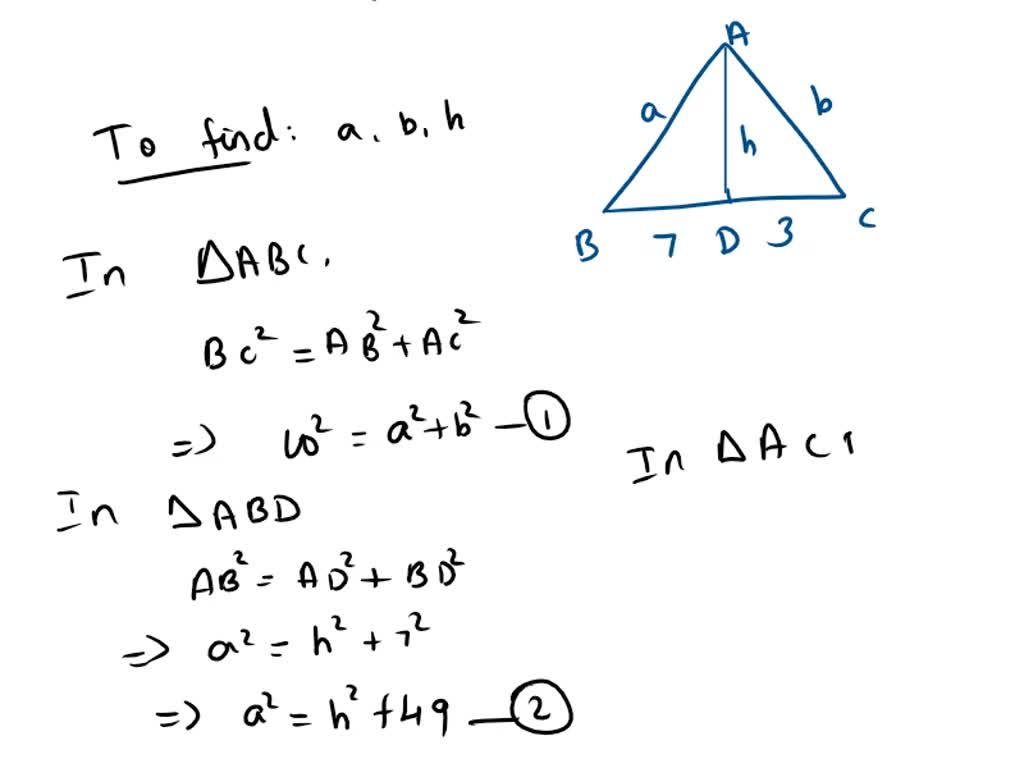 To find: a, b, h
A
a
b
h
B 7 D 3 C
In ΔABC,
BC² = AB² + AC²
=> 10² = a² + b² — ①
In ΔABD
AB² = AD² + BD²
=> a² = h² + 7²
=> a² = h² + 49 — ②
In ΔAC